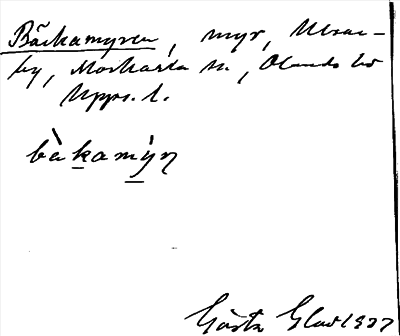 Bäckamyren, myr, Ulvac-
by, Morkarla sn, Olands hd
Upps. l.
bàkamýṇ
Gösta Glad 1927